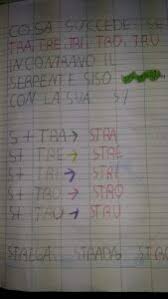 COSA SUCCEDE SE
TRA, TRE, TRI, TRO, TRU
INCONTRANO IL
SERPENTE SISO
CON LA SUA S
S + TRA → STRA
S + TRE → STRE
S + TRI → STRI
S + TRO → STRO
S + TRU → STRU
STREGA STRADA